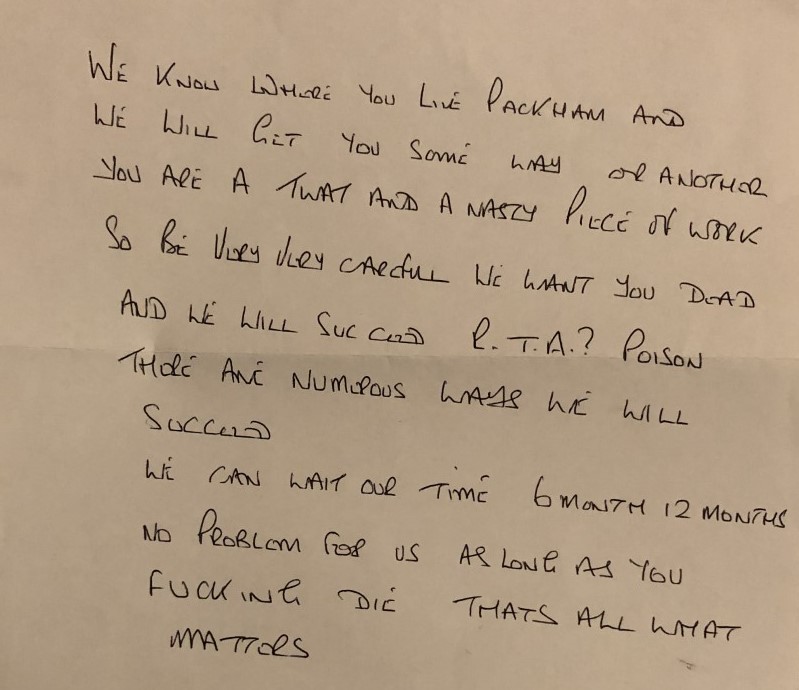 WE KNOW WHERE YOU LIVE PACKHAM AND
WE WILL GET YOU SOME WAY OR ANOTHER
YOU ARE A TWAT AND A NASTY PIECE OF WORK
SO BE VERY VERY CAREFULL WE WANT YOU DEAD
AND WE WILL SUCCEED R.T.A.? POISON
THERE ARE NUMEROUS WAYS WE WILL
SUCCEED
WE CAN WAIT OUR TIME 6 MONTH 12 MONTHS
NO PROBLEM FOR US AS LONG AS YOU
FUCKING DIE THATS ALL WHAT
MATTERS